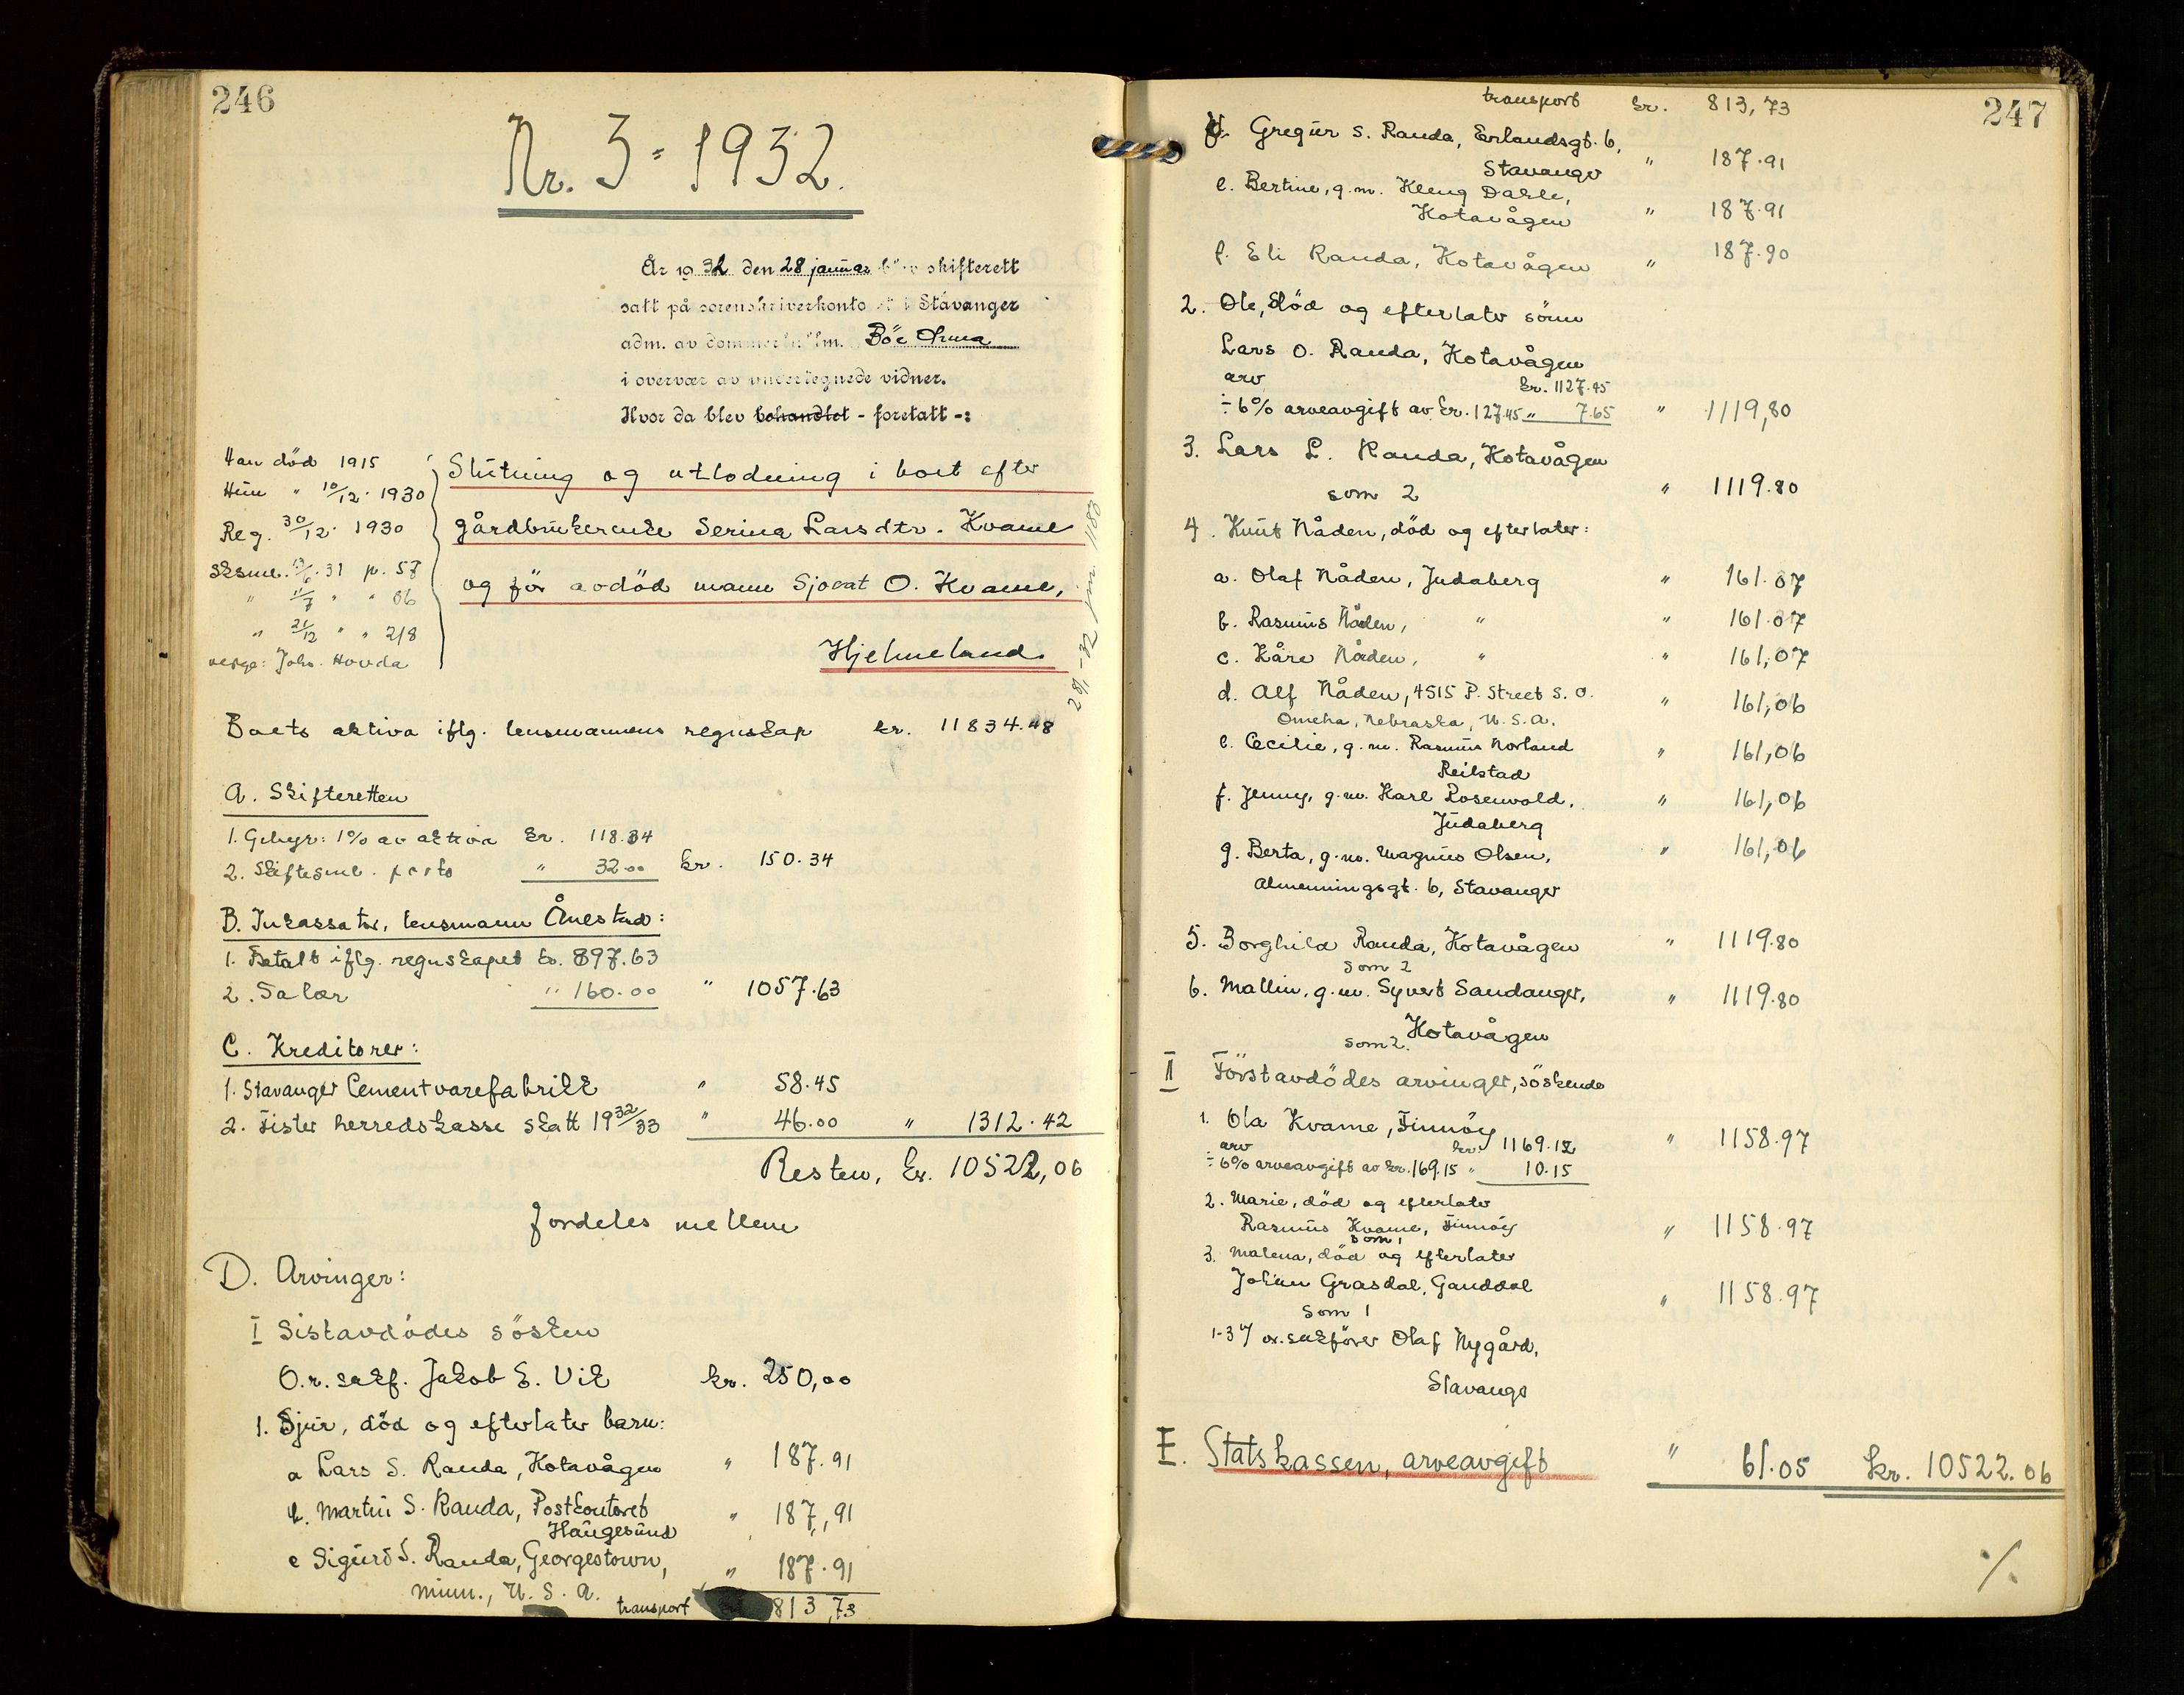 246
Nr. 3 = 1932.
År 1932 den 28 januar blev skifterett
satt på sorenskriverkontoret i Stavanger
adm. av dommerfullm. Böe
i overvær av undertegnede vidner.
Hvor da blev behandlet - foretatt -:
Han död 1915
Hun " 10/12. 1930
Reg. 30/12. 1930
Sksml. 13/6. 31 p. 57
" 11/7 " " 86
" 21/12 " " 218
verge: Johs. Hovda
Slutning og utlodning i boet efter
gårdbrukerenke Serina Larsdtr. Kvame
og för avdöd mann Sjovat O. Kvame,
Hjelmeland.
28/1-32 jnr. 1188
Boets aktiva iflg. lensmannens regnskap kr. 11834.48
A. Skifteretten
1. Gebyr: 1% av aktiva kr. 118.34
2. Skiftesml. porto " 32.00 kr. 150.34
B. Inkassator, lensmann Ånestad:
1. Betalt iflg. regnskapet kr. 897.63
2. Salær " 160.00 " 1057.63
C. Kreditorer:
1. Stavanger Cementvarefabrikk " 58.45
2. Fister herredskasse skatt 1932/33 " 46.00 " 1312.42
Resten, kr. 10522,06
fordeles mellem
D. Arvinger:
I Sistavdödes sösken
O.r. sakf. Jakob E. Vik kr. 250,00
1. Sjur, död og efterlater barn:
a Lars S. Randa, Hotavågen " 187.91
b. Martin S. Randa, Postkontoret " 187,91
Haugesund
c Sigurd S. Randa, Georgestown, " 187.91
Minn., U. S. A. transport 813,73
247
transport kr. 813,73
d. Gregur S. Randa, Erlandsgt. 6,
Stavanger " 187.91
e. Bertine, g.m. Kleng Dahle,
Hotavågen " 187.91
f. Eli Randa, Hotavågen " 187.90
2. Ole, död og efterlater sönn
Lars O. Randa, Hotavågen
arv kr. 1127.45
÷ 6% arveavgift av kr. 127.45 " 7.65 " 1119,80
3. Lars L. Randa, Hotavågen
som 2 " 1119.80
4. Knut Nåden, död og efterlater:
a. Olaf Nåden, Judaberg " 161.07
b. Rasmus Nåden, " " 161.07
c. Kåre Nåden, " " 161,07
d. Alf Nåden, 4515 P. Street S. O. " 161,06
Omeha, Nebraska, U.S.A.
e. Cecilie, g.m. Rasmus Norland " 161,06
Reilstad
f. Jenny, g.m. Karl Rosenvold, " 161,06
Judaberg
g. Berta, g.m. Magnus Olsen, " 161,06
Almenningsgt. 6, Stavanger
5. Borghild Randa, Hotavågen " 1119.80
som 2
6. Mallin, g.m. Syvert Sandanger, " 1119.80
Hotavågen
som 2.
II Förstavdödes arvinger, söskende
1. Ola Kvame, Finnöy " 1158.97
arv kr. 1169.12
÷ 6% arveavgift av kr. 169.15 " 10.15
2. Marie, död og efterlater
Rasmus Kvame, Finnöy " 1158.97
som 1
3. Malena, död og efterlater
Johan Grasdal, Ganddal " 1158.97
som 1
1-3 v/ o.r.sakförer Olaf Nygård,
Stavanger
E. Statskassen, arveavgift " 61.05 kr. 10522.06
./.